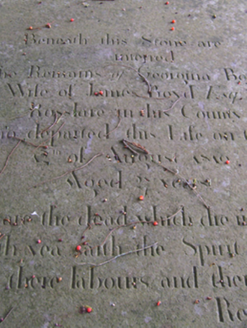 Beneath this Stone are
interred
he Remains of Georgina Bo
Wife of James Boyd Esq.
in this County
departed this Life on
of August
Aged 27 years
the dead which die
h yea saith the Spirit
there labours and the
Re